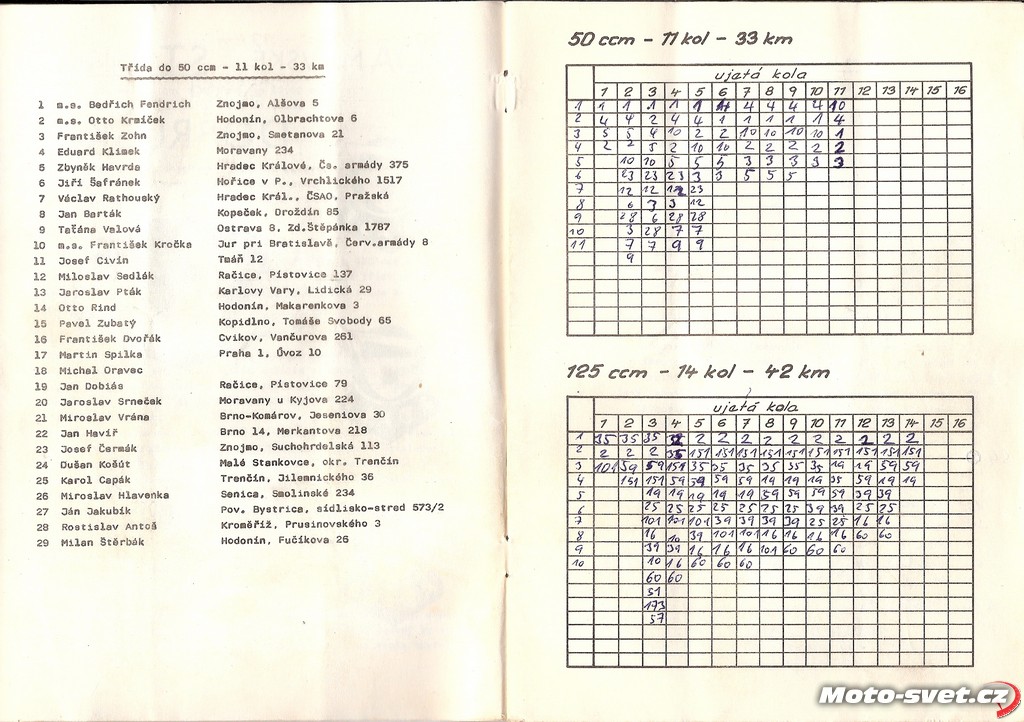 Třída do 50 ccm - 11 kol - 33 km
1 m.s. Bedřich Fendrich Znojmo, Alšova 5
2 m.s. Otto Krmíček Hodonín, Olbrachtova 6
3 František Zohn Znojmo, Smetanova 21
4 Eduard Klimek Moravany 234
5 Zbyněk Havrda Hradec Králové, Čs. armády 375
6 Jiří Šafránek Hořice v P., Vrchlického 1517
7 Václav Rathouský Hradec Král., ČSAO, Pražská
8 Jan Barták Kopeček, Droždín 85
9 Taťána Valová Ostrava 8, Zd.Štěpánka 1787
10 m.s. František Kročka Jur pri Bratislavě, Červ.armády 8
11 Josef Civín Tmáň 12
12 Miloslav Sedlák Račice, Pístovice 137
13 Jaroslav Pták Karlovy Vary, Lidická 29
14 Otto Rind Hodonín, Makarenkova 3
15 Pavel Zubatý Kopidlno, Tomáše Svobody 65
16 František Dvořák Cvikov, Vančurova 261
17 Martin Spilka Praha 1, Úvoz 10
18 Michal Oravec
19 Jan Dobiáš Račice, Pístovice 79
20 Jaroslav Srneček Moravany u Kyjova 224
21 Miroslav Vrána Brno-Komárov, Jeseniova 30
22 Jan Havíř Brno 14, Merkantova 218
23 Josef Čermák Znojmo, Suchohrdelská 113
24 Dušan Košút Malé Stankovce, okr. Trenčín
25 Karol Capák Trenčín, Jilemnického 36
26 Miroslav Hlavenka Senica, Smolinské 234
27 Ján Jakubík Pov. Bystrica, sídlisko-stred 573/2
28 Rostislav Antoš Kroměříž, Prusinovského 3
29 Milan Štěrbák Hodonín, Fučíkova 26
50 ccm - 11 kol - 33 km
ujetá kola
1 2 3 4 5 6 7 8 9 10 11 12 13 14 15 16
1 1 1 1 1 1 4 4 4 4 4 10
2 4 4 2 4 4 1 1 1 1 1 4
3 5 5 4 10 2 2 10 10 10 10 1
4 2 2 5 2 10 10 2 2 2 2 2
5 10 10 5 5 5 3 3 3 3 3
6 23 23 23 3 3 5 5 5
7 12 12 12 23
8 6 3 3 12
9 28 6 28 28
10 3 28 7 7
11 7 7 9 9
9
125 ccm - 14 kol - 42 km
ujetá kola
1 2 3 4 5 6 7 8 9 10 11 12 13 14 15 16
1 35 35 35 2 2 2 2 2 2 2 2 2 2
2 2 2 2 35 151 151 151 151 151 151 151 151 151 151
3 101 59 59 151 35 35 35 35 35 35 19 19 59 59
4 151 151 59 59 59 59 19 19 19 35 59 19 19
5 19 19 19 19 19 59 59 59 59 39 39
6 25 25 25 25 25 25 25 39 39 25 25
7 101 101 101 39 39 39 39 25 25 16 16
8 16 10 39 101 101 16 16 16 16 60 60
9 39 39 16 16 16 101 60 60 60
10 10 16 60 60 60
60 60
51
173
57
Moto-svet.cz